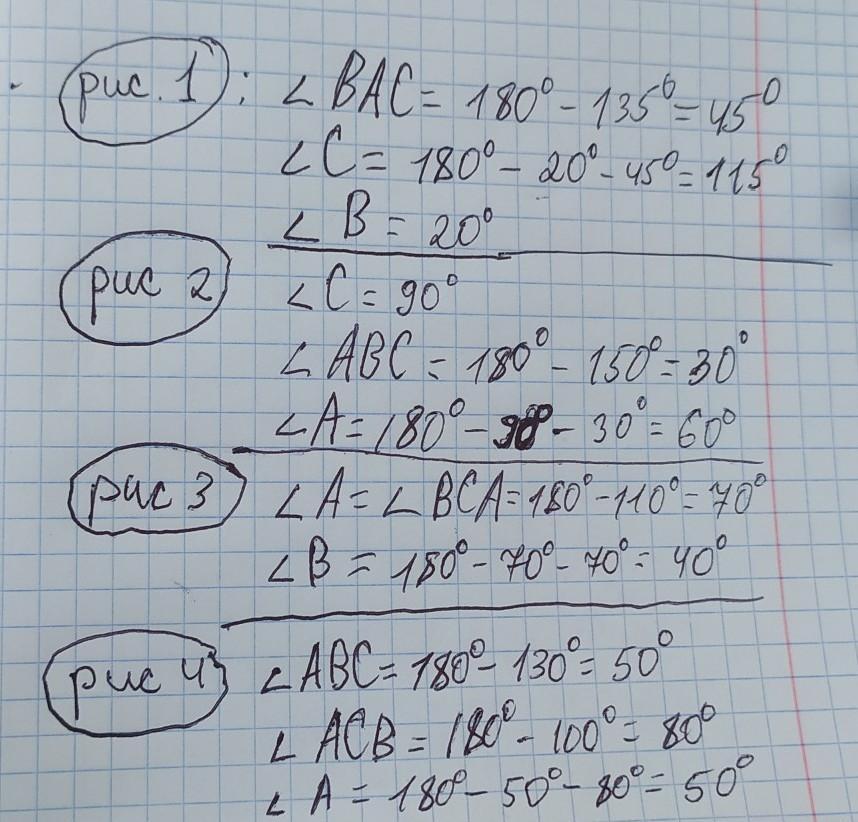 рис. 1 : ∠BAC = 180° - 135° = 45°
∠C = 180° - 20° - 45° = 115°
∠B = 20°
рис 2 ∠C = 90°
∠ABC = 180° - 150° = 30°
∠A = 180° - 90° - 30° = 60°
рис 3 ∠A = ∠BCA = 180° - 110° = 70°
∠B = 180° - 70° - 70° = 40°
рис 4 ∠ABC = 180° - 130° = 50°
∠ACB = 180° - 100° = 80°
∠A = 180° - 50° - 80° = 50°